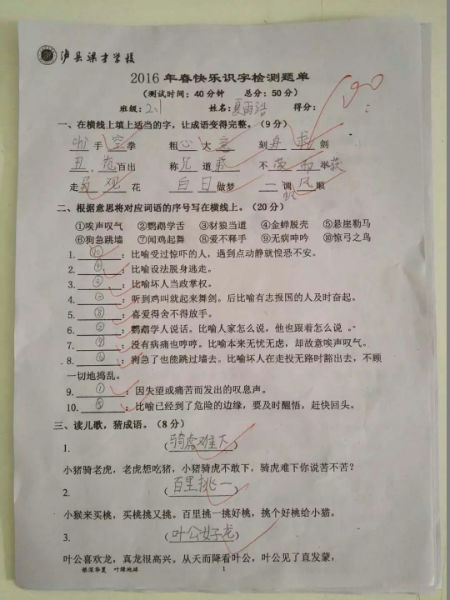 泸县梁才学校
2016年春快乐识字检测题单
（测试时间：40分钟 总分：50分）
班级：2.1 姓名：夏雨浩 得分：90
一、在横线上填上适当的字，让成语变得完整。（9分）
手空拳 粗心大意 刻舟求剑
丑态百出 称兄道 不而获
走观花 白日做梦 一调风顺
二、根据意思将对应词语的序号写在横线上。（20分）
①唉声叹气 ②鹦鹉学舌 ③豺狼当道 ④金蝉脱壳 ⑤悬崖勒马
⑥狗急跳墙 ⑦闻鸡起舞 ⑧爱不释手 ⑨无病呻吟 ⑩惊弓之鸟
1. ：比喻受过惊吓的人，遇到点动静就惶恐不安。
2. ：比喻设法脱身逃走。
3. ：比喻坏人当政掌权。
4. ：听到鸡叫就起来舞剑。后比喻有志报国的人及时奋起。
5. ：喜爱得舍不得放手。
6. ：鹦鹉学人说话。比喻人家怎么说，他也跟着怎么说。
7. ：没有病痛也哼哼。比喻本来无忧无虑，却故意唉声叹气。
8. ：狗急了也能跳过墙去。比喻坏人在走投无路时豁出去，不顾
一切地捣乱。
9. ：因失望或痛苦而发出的叹息声。
10. ：比喻已经到了危险的边缘，要及时醒悟，赶快回头。
三、读儿歌，猜成语。（8分）
1. （骑虎难下）
小猪骑老虎，老虎想吃猪，小猪骑虎不敢下，骑虎难下你说苦不苦？
2. （百里挑一）
小猴来买桃，买桃挑又挑。百里挑一挑好桃，挑个好桃给小猫。
3. （叶公好龙）
叶公喜欢龙，真龙很高兴。从天而降看叶公，叶公见了直发蒙，
根深华夏 叶绿地球 1